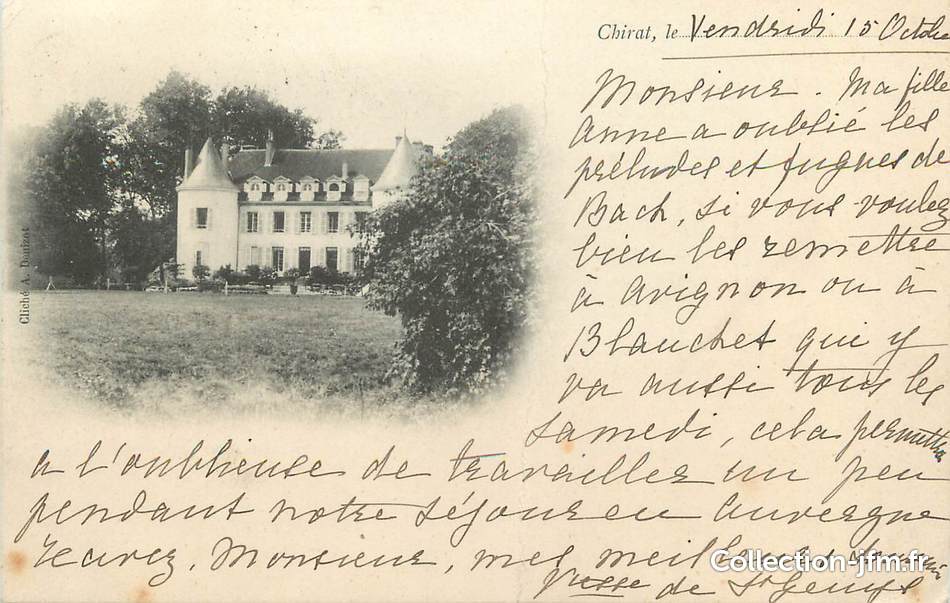 Chirat, le Vendredi 15 Octobre
Monsieur. Ma fille
Anne a oublié les
préludes et fugues de
Bach, si vous voulez
bien les remettre
à Avignon ou à
Blanchet qui y
va aussi tous les
samedi, cela permettra
a l'oublieuse de travailler un peu
pendant notre séjour en Auvergne
Monsieur, mes meilleurs
Vsse de St
Cliché A. Donizot
Collection-jfm.fr